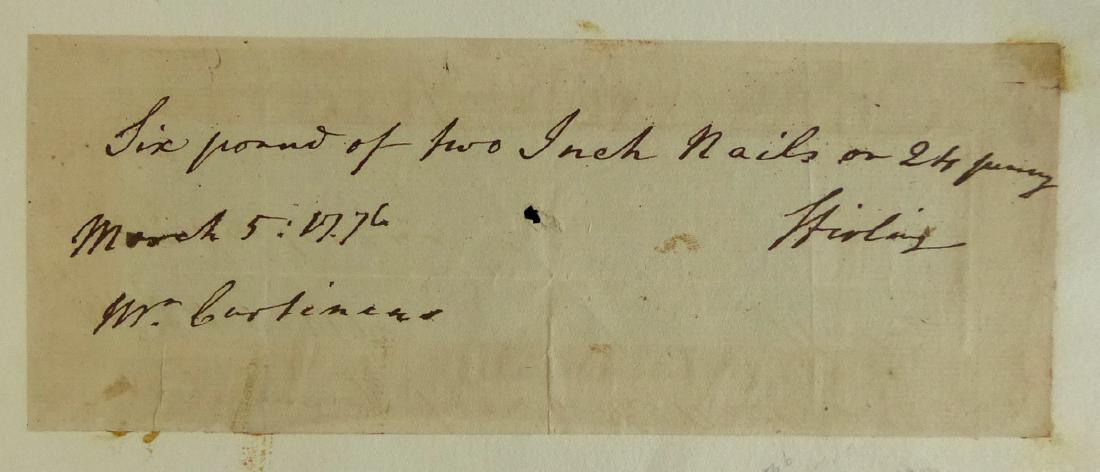 Six pound of two Inch Nails or 24 penny
March 5: 1776 Stirling
Mr. Curtineus